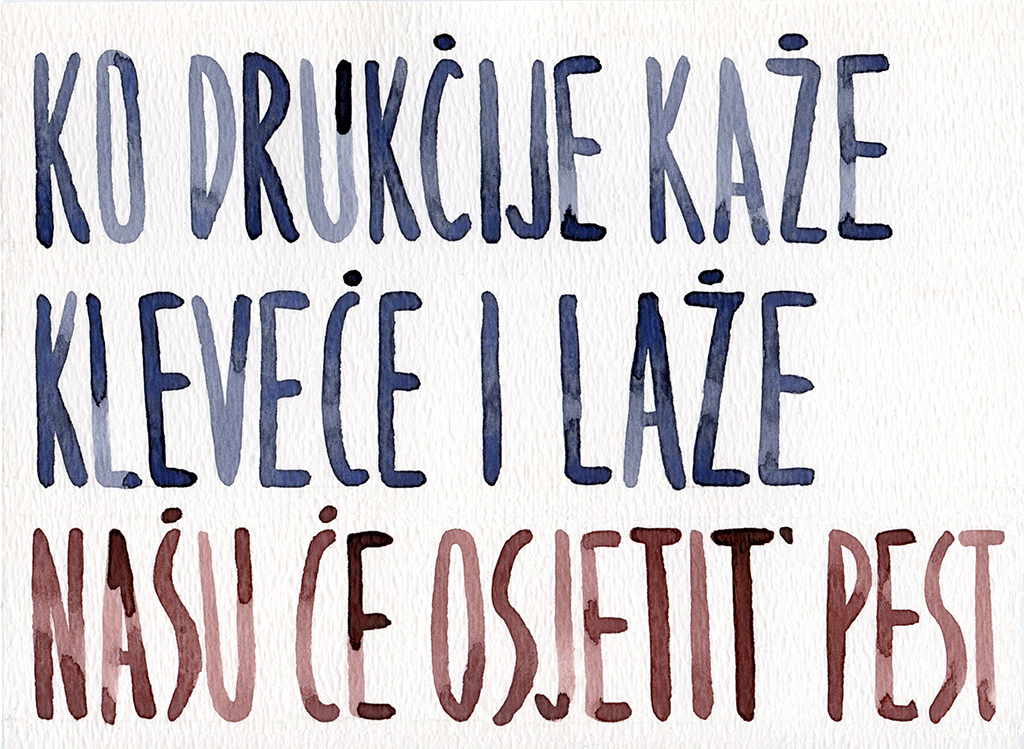 KO DRUKČIJE KAŽE
KLEVEĆE I LAŽE
NAŠU ĆE OSJETIT' PEST